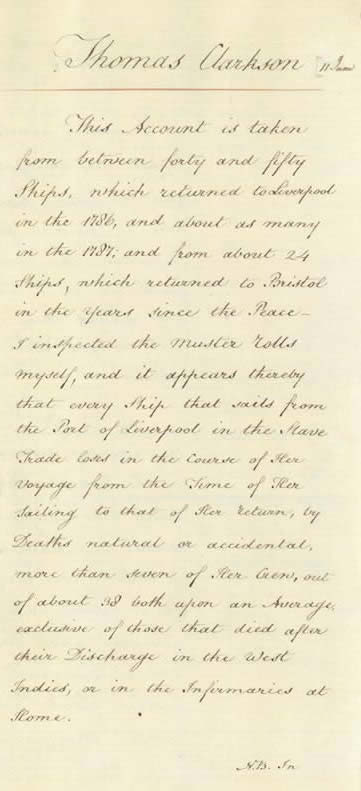 Thomas Clarkson 11 June
This Account is taken
from between forty and fifty
Ships, which returned to Liverpool
in the 1786, and about as many
in the 1787; and from about 24
Ships, which returned to Bristol
in the Years since the Peace—
I inspected the Muster Rolls
myself, and it appears thereby
that every Ship that sails from
the Port of Liverpool in the Slave
Trade loses in the Course of Her
Voyage from the Time of Her
Sailing to that of Her return, by
Deaths natural or accidental,
more than seven of Her Crew, out
of about 38 both upon an Average,
exclusive of those that died after
their Discharge in the West
Indies, or in the Infirmaries at
Home.
N.B. In